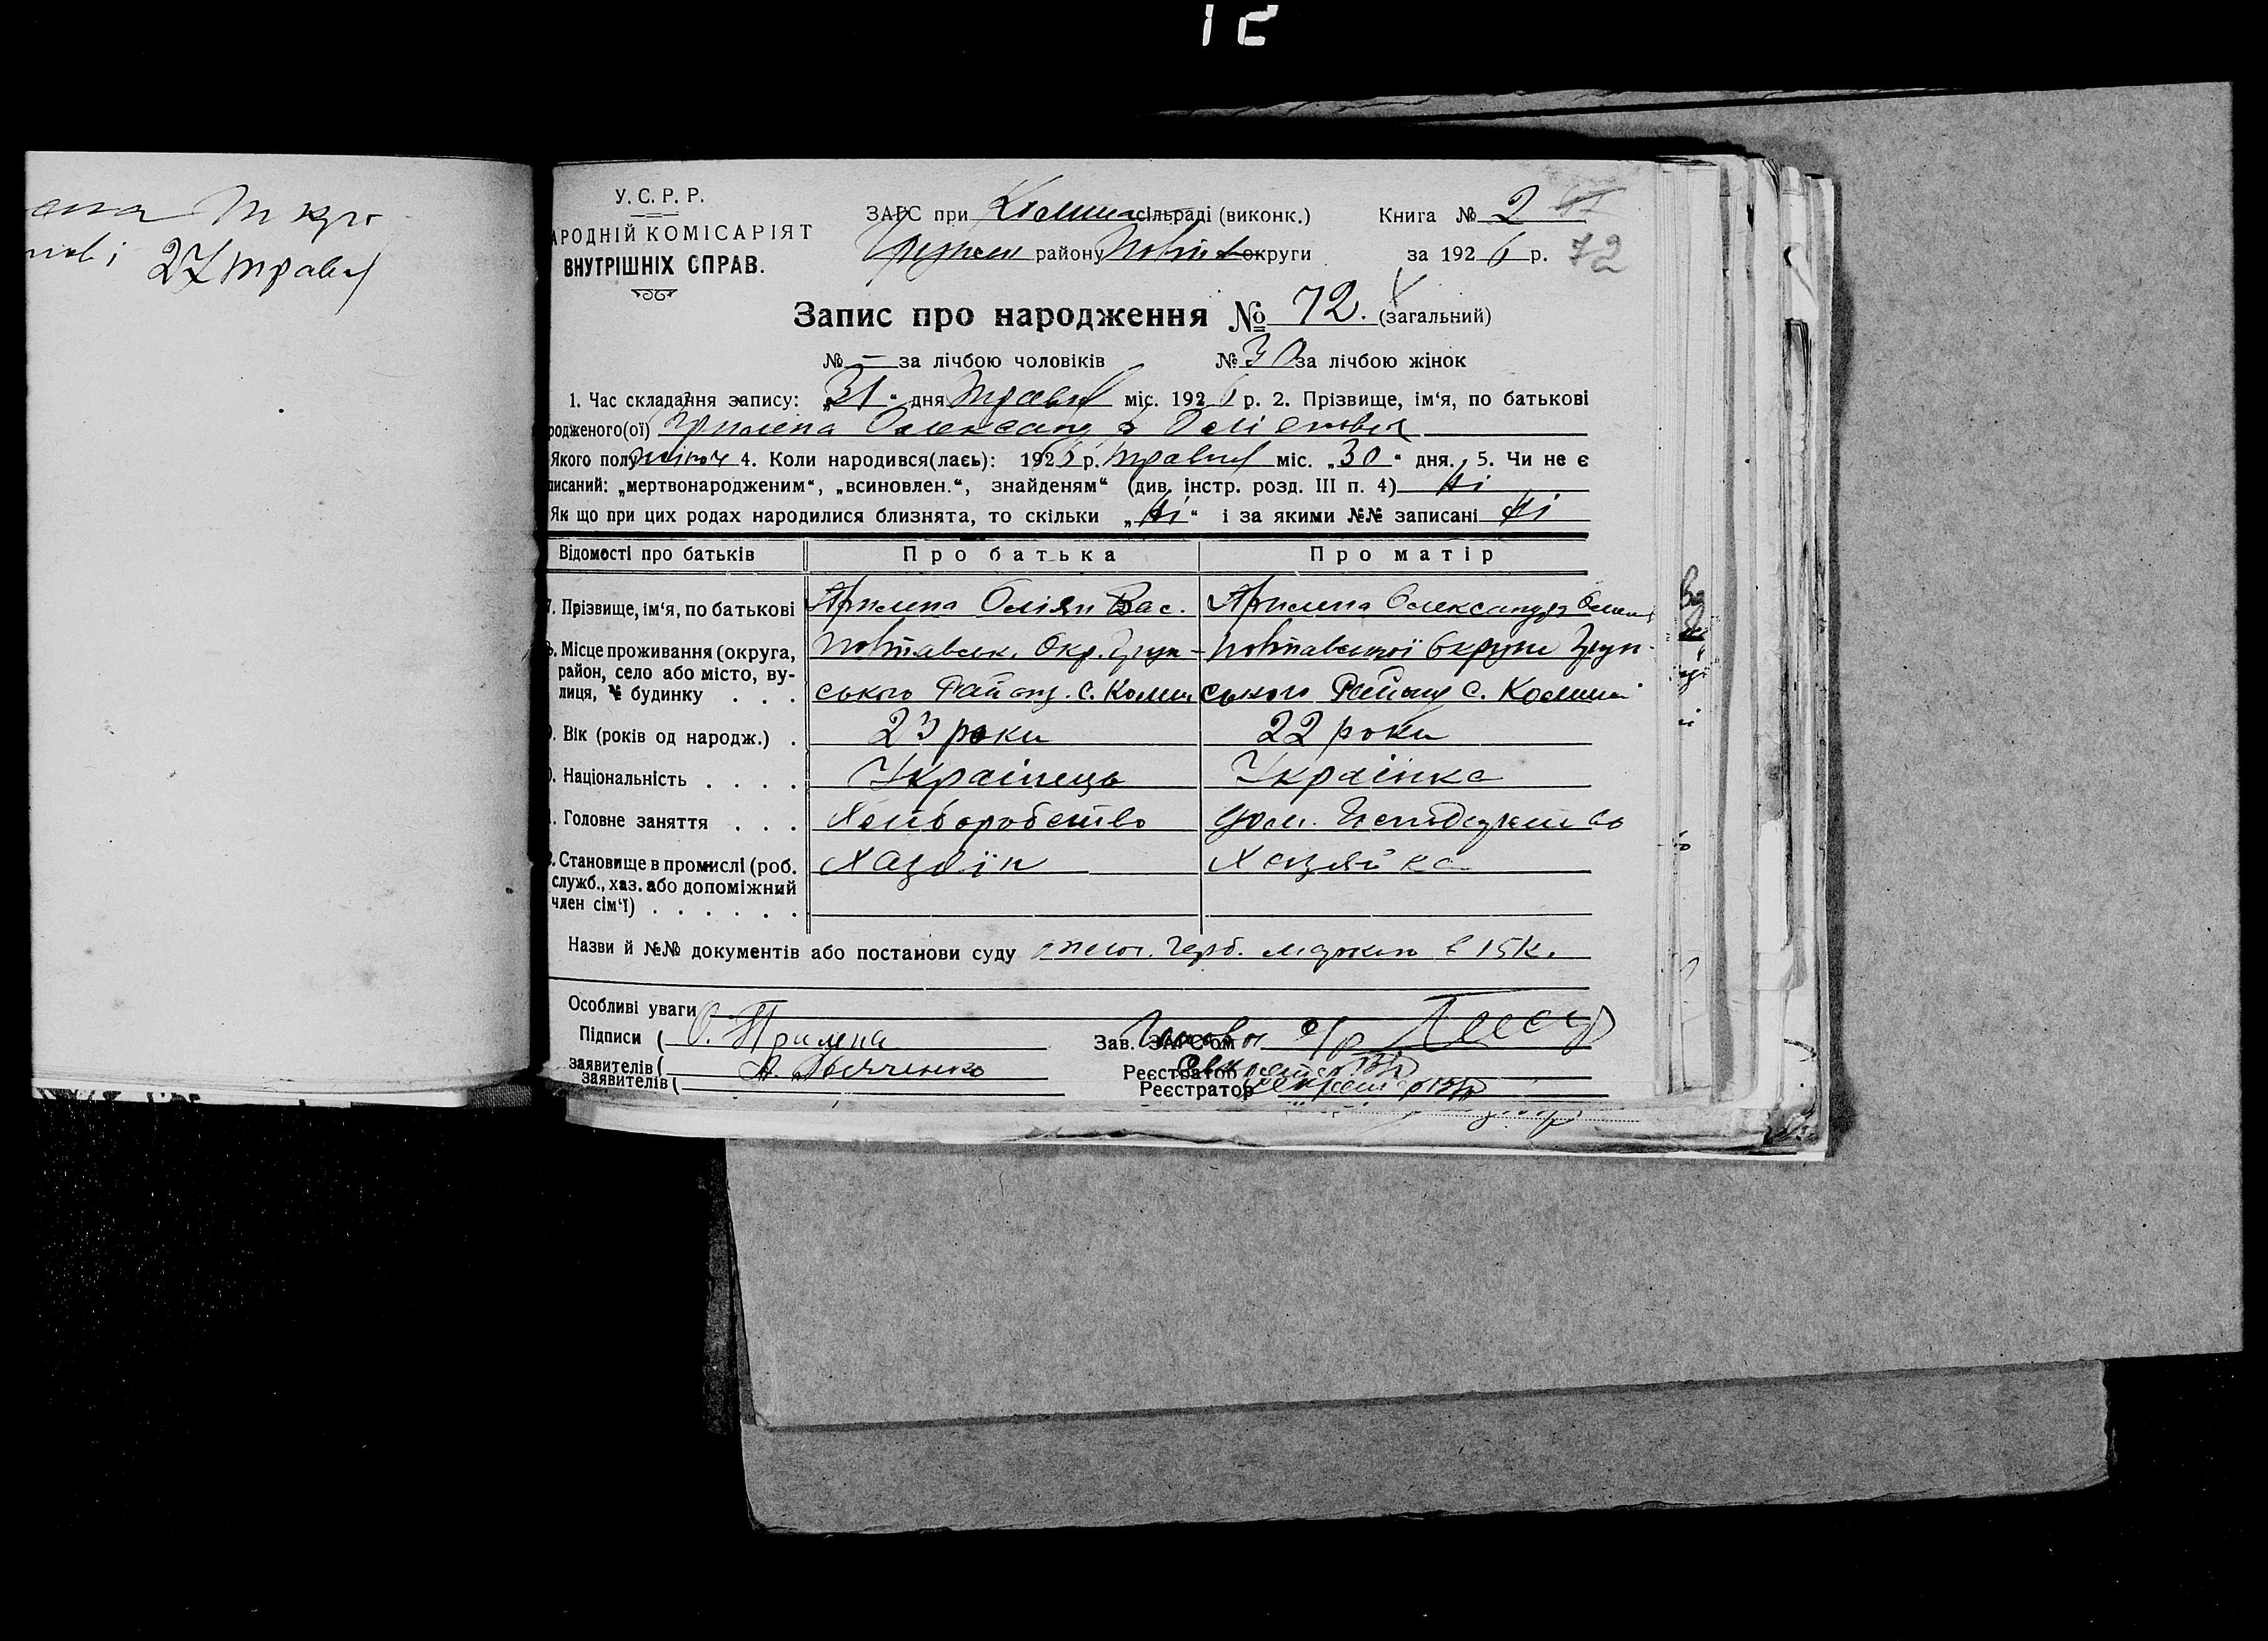 12
27 травня
У. С. Р. Р.
АРОДНІЙ КОМІСАРІЯТ
ВНУТРІШНІХ СПРАВ.
ЗАГС при сільраді (виконк.)
району округи
Книга № 2
за 1926 р. 72
Запис про народження № 72. (загальний)
№ – за лічбою чоловіків № 30 за лічбою жінок
1. Час складання запису: „31“ дня Травня міс. 1926 р. 2. Прізвище, ім'я, по батькові
родженого(ої) Прилепа Олександра
Якого полу жіноч 4. Коли народився(лась): 1926 р. травня міс. „30“ дня. 5. Чи не є
писаний: „мертвонародженим“, „всиновлен.“, знайденям“ (див. інстр. розд. III п. 4) Ні
Як що при цих родах народилися близнята, то скільки „Ні“ і за якими №№ записані Ні
Відомості про батьків Про батька Про матір
7. Прізвище, ім'я, по батькові Прилепа Оліян Вас. Прилепа Олександра
Місце проживання (округа, район, село або місто, вулиця, № будинку . . . Полтавськ. Окр. Грун- Полтавської Округи Грун-
ського Району. с. ського Району с.
Вік (років од народж.) . 23 роки 22 роки
Національність . . . . Українець Українка
Головне заняття . . . Хліборобство Дом. Господарство
Становище в промислі (роб. служб., хаз. або допоміжний член сім'ї) . . . . . . Хазяїн Хазяйка
Назви й №№ документів або постанови суду герб. маркою в 15 к.
Особливі уваги
Підписи ( О. Прилепа Зав. ЗАГС'ом
заявителів ( Реєстратор
заявителів ( Реєстратор